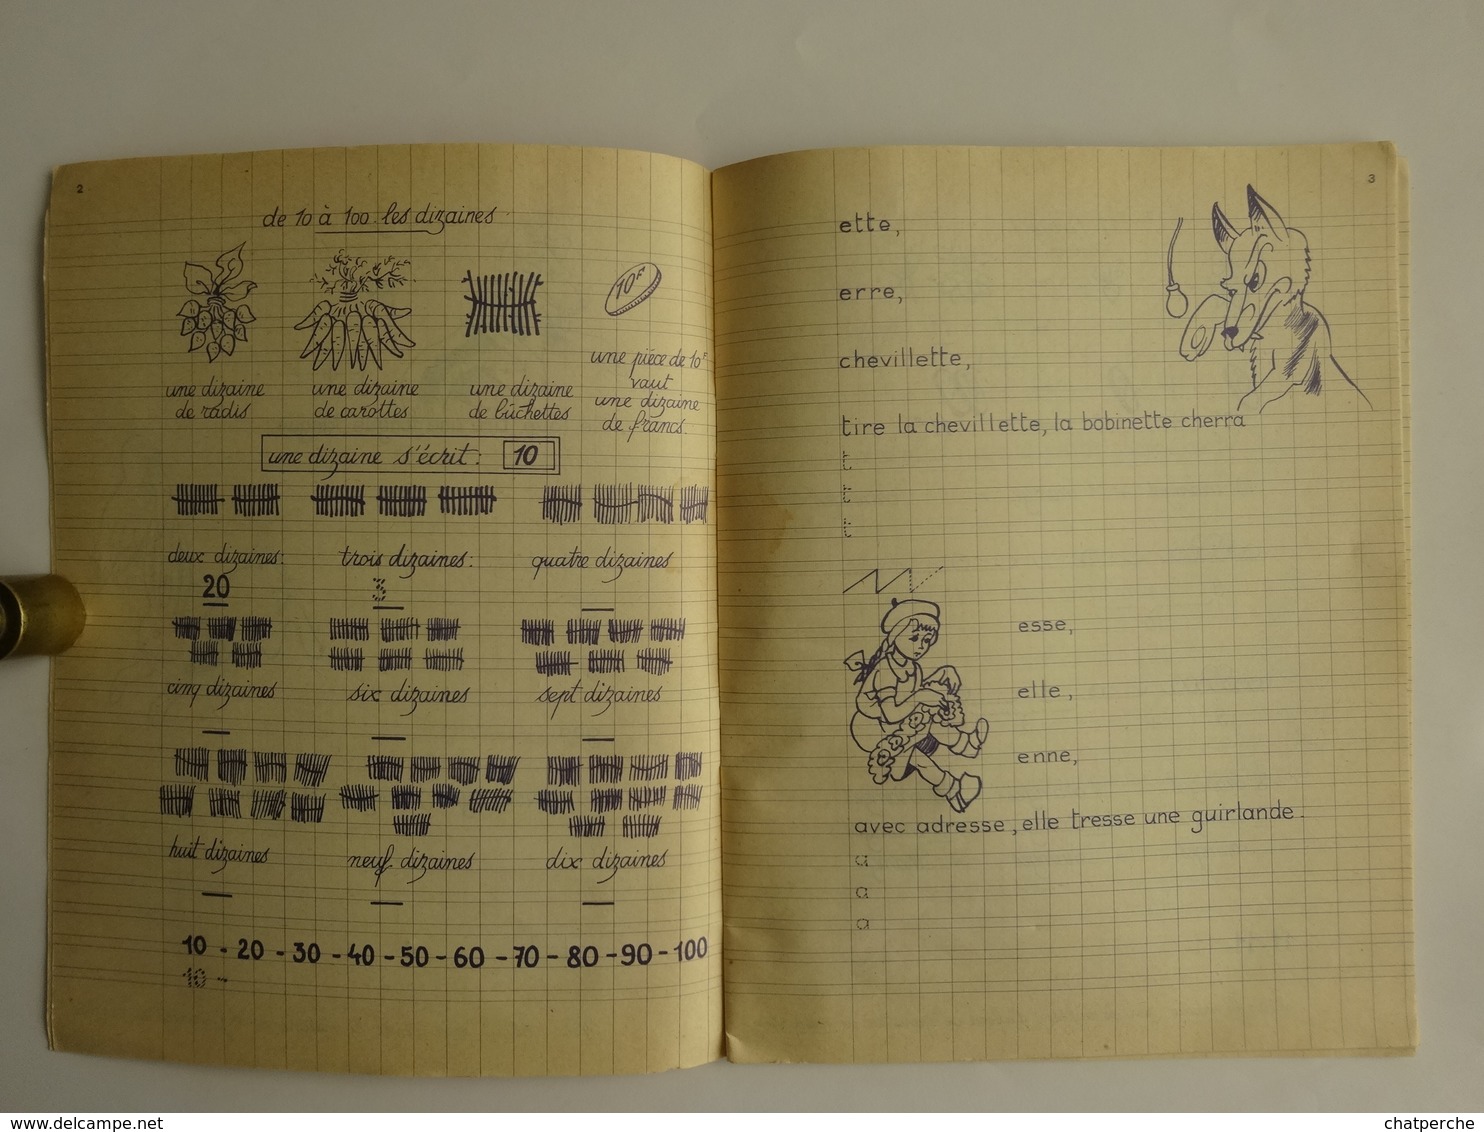 2
de 10 à 100. les dizaines
10F
une dizaine
de radis
une dizaine
de carottes
une dizaine
de bûchettes
une pièce de 10F
vaut
une dizaine
de francs.
une dizaine s'écrit: 10
deux dizaines: trois dizaines: quatre dizaines
20 3
cinq dizaines six dizaines sept dizaines
huit dizaines neuf dizaines dix dizaines
10 - 20 - 30 - 40 - 50 - 60 - 70 - 80 - 90 - 100
10 -
3
ette,
erre,
chevillette,
tire la chevillette, la bobinette cherra
t
t
t
esse,
elle,
enne,
avec adresse, elle tresse une guirlande.
a
a
a
www.delcampe.net
chatperche